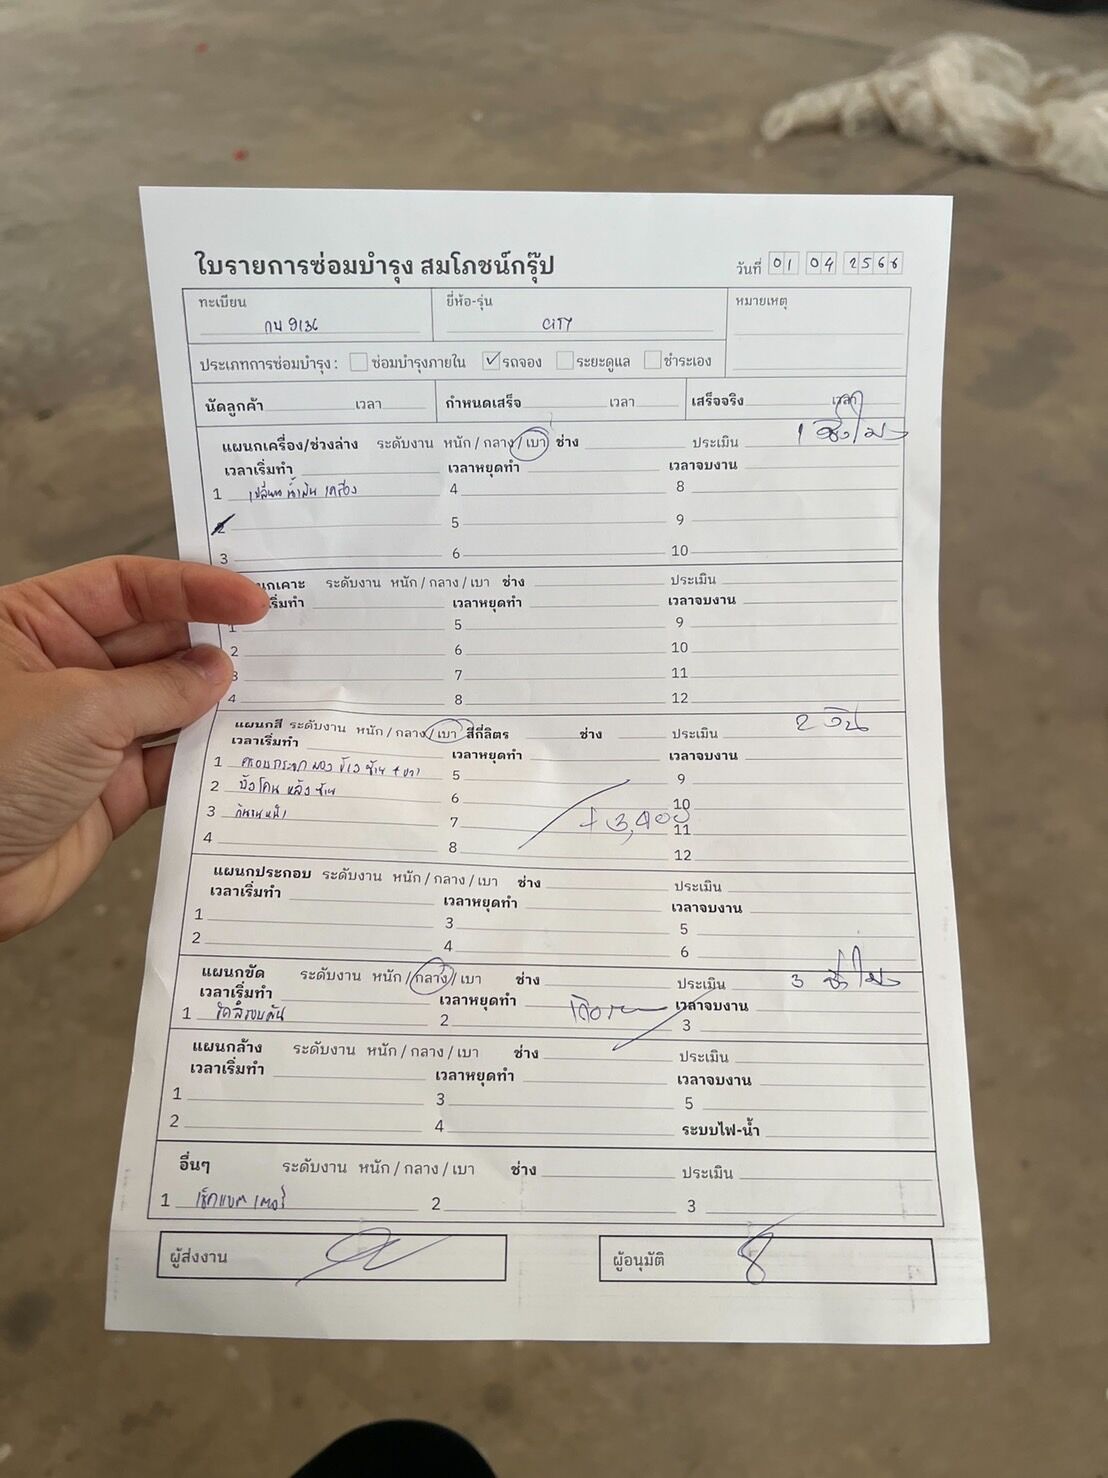 ใบรายการซ่อมบำรุง สมโภชน์กรุ๊ป
วันที่ 01 04 2566
ทะเบียน ยี่ห้อ-รุ่น หมายเหตุ
กน 9136 CITY
ประเภทการซ่อมบำรุง : ซ่อมบำรุงภายใน ✓ รถจอง ระยะดูแล ชำระเอง
นัดลูกค้า เวลา กำหนดเสร็จ เวลา เสร็จจริง เวลา
แผนกเครื่อง/ช่วงล่าง ระดับงาน หนัก / กลาง / เบา ช่าง ประเมิน 1 ชั่วโมง
เวลาเริ่มทำ เวลาหยุดทำ เวลาจบงาน
1 เปลี่ยนน้ำมันเครื่อง 4 8
2 5 9
3 6 10
นกเคาะ ระดับงาน หนัก / กลาง / เบา ช่าง ประเมิน
เริ่มทำ เวลาหยุดทำ เวลาจบงาน
1 5 9
2 6 10
3 7 11
4 8 12
แผนกสี ระดับงาน หนัก / กลาง / เบา สีกี่ลิตร ช่าง ประเมิน 2 วัน
เวลาเริ่มทำ เวลาหยุดทำ เวลาจบงาน
1 ครอบกระจกมองข้าง ซ้าย + ขวา 5 9
2 บังโคลนหลังซ้าย 6 10
3 กันชนหน้า 7 11
4 8 12
แผนกประกอบ ระดับงาน หนัก / กลาง / เบา ช่าง ประเมิน
เวลาเริ่มทำ เวลาหยุดทำ เวลาจบงาน
1 3 5
2 4 6
แผนกขัด ระดับงาน หนัก / กลาง / เบา ช่าง ประเมิน 3 ชั่วโมง
เวลาเริ่มทำ เวลาหยุดทำ เวลาจบงาน
1 ขัดสีรอบคัน 2 3
แผนกล้าง ระดับงาน หนัก / กลาง / เบา ช่าง ประเมิน
เวลาเริ่มทำ เวลาหยุดทำ เวลาจบงาน
1 3 5
2 4 ระบบไฟ-น้ำ
อื่นๆ ระดับงาน หนัก / กลาง / เบา ช่าง ประเมิน
1 เช็คแบตเตอรี่ 2 3
ผู้ส่งงาน ผู้อนุมัติ